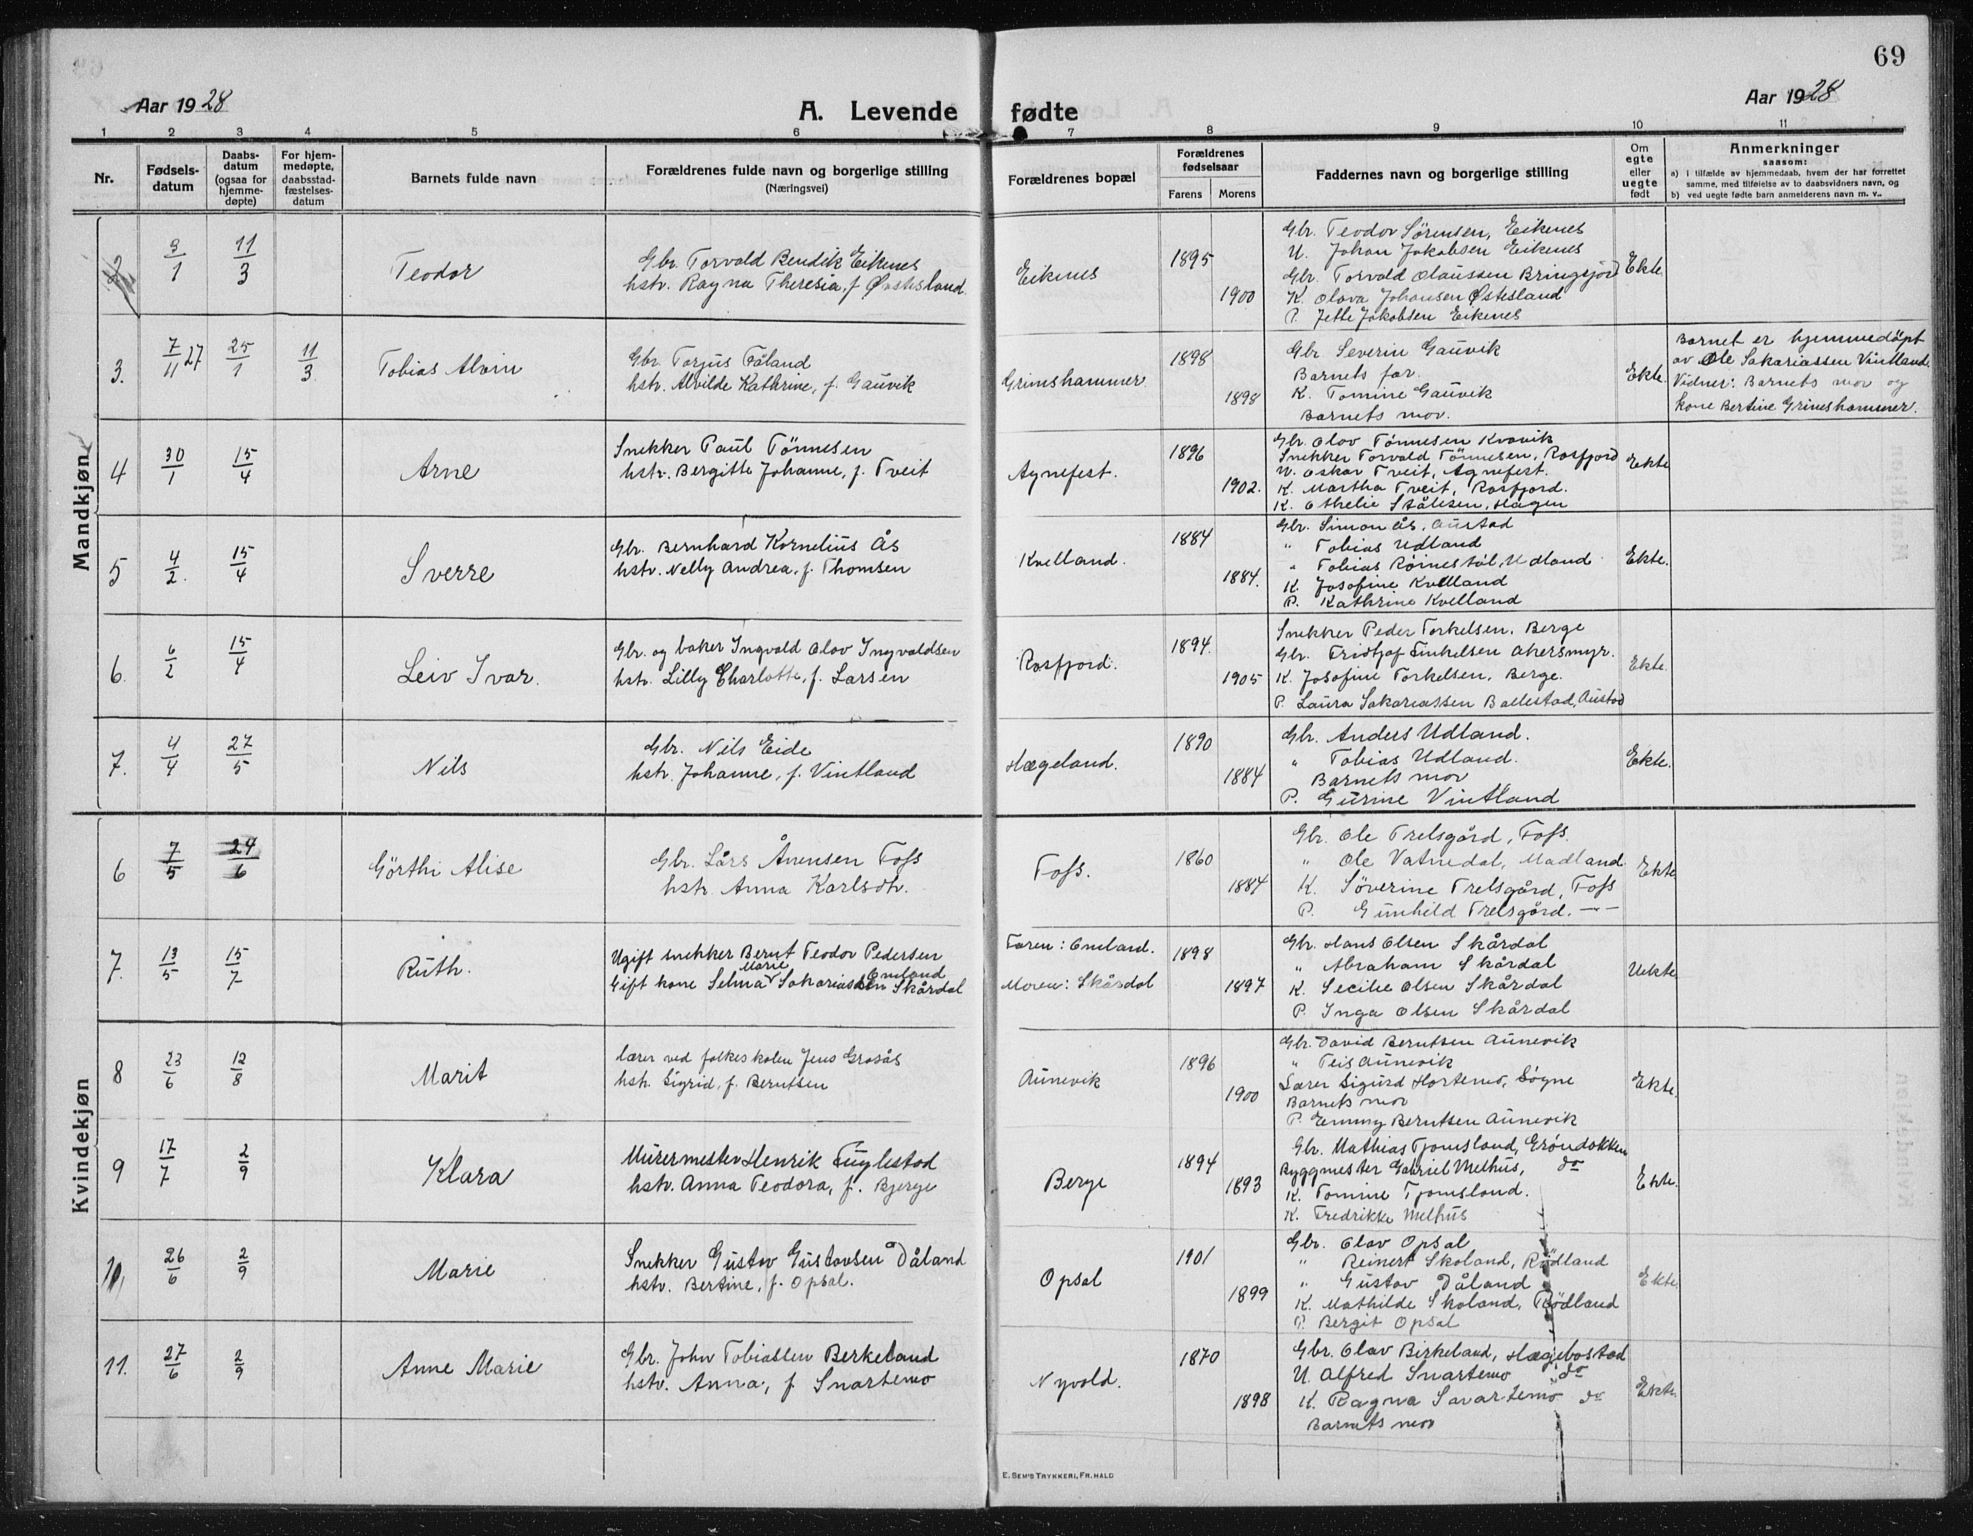 69
Aar 1928
A. Levende fødte
Aar 1928
1 2 3 4 5 6 7 8 9 10 11
Nr.
Fødsels-
datum
Daabs-
datum
(ogsaa for
hjemme-
døpte)
For hjem-
medøpte,
daabsstad-
fæstelses-
datum
Barnets fulde navn
Forældrenes fulde navn og borgerlige stilling
(Næringsvei)
Forældrenes bopæl
Forældrenes
fødselsaar
Farens Morens
Faddernes navn og borgerlige stilling
Om
egte
eller
uegte
født
Anmerkninger
saasom:
a) i tilfælde av hjemmedaab, hvem der har forrettet
samme, med tilføielse av to daabsvidners navn, og
b) ved uegte fødte barn anmelderens navn m. v..
Mandkjøn
2 9/1 11/3 Teodor
Gbr. Torvald Bendik Eikenes
hstr. Ragna Theresia, f. Østesland
Eikenes 1895 1900
Gbr. Teodor Sørensen, Eikenes
U. Johan Jakobsen Eikenes
Gbr. Torvald Olaussen Bringsjord
K. Olava Johansen Østesland
P. Jette Jakobsen Eikenes
Ekte
3. 7/11 27 25/1 11/3 Tobias Alvin
Gbr. Torjus Fåland
hstr. Alvilde Kathrine, f. Gauvik
Grimshammer 1898 1898
Gbr Severin Gauvik
Barnets far.
K. Tomine Gauvik
Barnets mor.
Ekte.
Barnet er hjemmedöpt
av Ole Sakariassen Vintland.
Vidner: Barnets mor og
kone Bertine Grimshammer.
4 30/1 15/4 Arne
Snekker Paul Tönnesen
hstr. Bergitte Johanne, f. Tveit
Agnefest. 1896 1902.
Gbr. Olov Tönnesen Kvavik
Snekker Torvald Tönnesen, Rosfjord
U. Oskar Tveit, Agnefest.
K. Martha Tveit, Rosfjord.
K. Othelie Stålesen, Hagen
Ekte
5 4/2. 15/4 Sverre
Gbr. Bernhard Kornelius Ås
hstr. Nelly Andrea, f. Thomsen
Kvelland. 1884 1884.
Gbr. Simon Ås, Austad
" Tobias Udland
" Tobias Röinestöl, Udland
K. Josefine Kvelland
P. Kathrine Kvelland
Ekte.
6. 6/2 15/4 Leiv Ivar.
Gbr. og baker Ingvald Olav Ingvaldsen
hstr. Lilly Charlotte, f. Larsen
Rosfjord. 1894. 1905
Snekker Peder Torkelsen. Berge
Gbr. Fridtjof Akersmyr.
K. Josefine Torkelsen, Berge.
P. Laura Sakariassen Ballestad, Austad
Ekte.
7. 4/4 27/5 Nils
Gbr. Nils Eide
hstr. Johanne, f. Vintland
Hægeland. 1890 1884
Gbr. Anders Udland.
" Tobias Udland.
Barnets mor
P. Gurine Vintland
Ekte.
Kvindekjøn
6 7/5 24/6 Görthi Alise
Gbr. Lårs Ånensen Foss
hstr. Anna Karlsdtr.
Foss. 1860 1884
Gbr. Ole Trelsgård, Foss.
" Ole Vatnedal, Madland
K. Söverine Trelsgård, Foss
P. Gunhild Trelsgård. — —
Ekte
7. 13/5 15/7 Ruth.
Ugift snekker Bernt Teodor Pedersen Omland
Gift kone Selma Marie Sakariassen Skårdal
Faren: Omland.
Moren: Skårdal
1898 1897
Gbr. Hans Olsen Skårdal
" Abraham Skårdal
K. Secilie Olsen Skårdal
P. Inga Olsen Skårdal
Uekte
8 23/6 12/8 Marit
Lærer ved folkeskolen Jens Grosås
hstr. Sigrid, f. Berntsen
Aunevik 1896 1900
Gbr. David Berntsen Aunevik
" Teis Aunevik
Lærer Sigurd Hortemo, Søgne
Barnets mor
P. Emmy Berntsen Aunevik
Ekte.
9 17/7 2/9 Klara
Murermester Henrik Fuglestad
hstr. Anna Teodora, f. Bjerge
Berge 1894 1893
Gbr. Mathias Tjomsland, Gröndokken
Byggmester Gabriel Melhus, do
K. Tomine Tjomsland.
K. Fredrikke Melhus
Ekte.
10, 26/6 2/9 Marie
Snekker Gustav Gustavsen Dåland
hstr. Bertine, f. Opsal.
Opsal 1901 1899
Gbr. Olav Opsal
" Reinert Skoland, Rödland
" Gustav Dåland
K. Mathilde Skoland, Rödland
P. Bergit Opsal
Ekte.
11. 27/6 2/9 Anne Marie
Gbr. John Tobiassen Berkeland
hstr. Anna, f. Snartemo
Nyvold. 1870 1898
Gbr. Olav Birkeland, Hægebostad
U. Alfred Snartemo do
K. Ragna Snartemo do
Barnets mor
Ekte
E. SEM'S TRYKKERI, FR. HALD